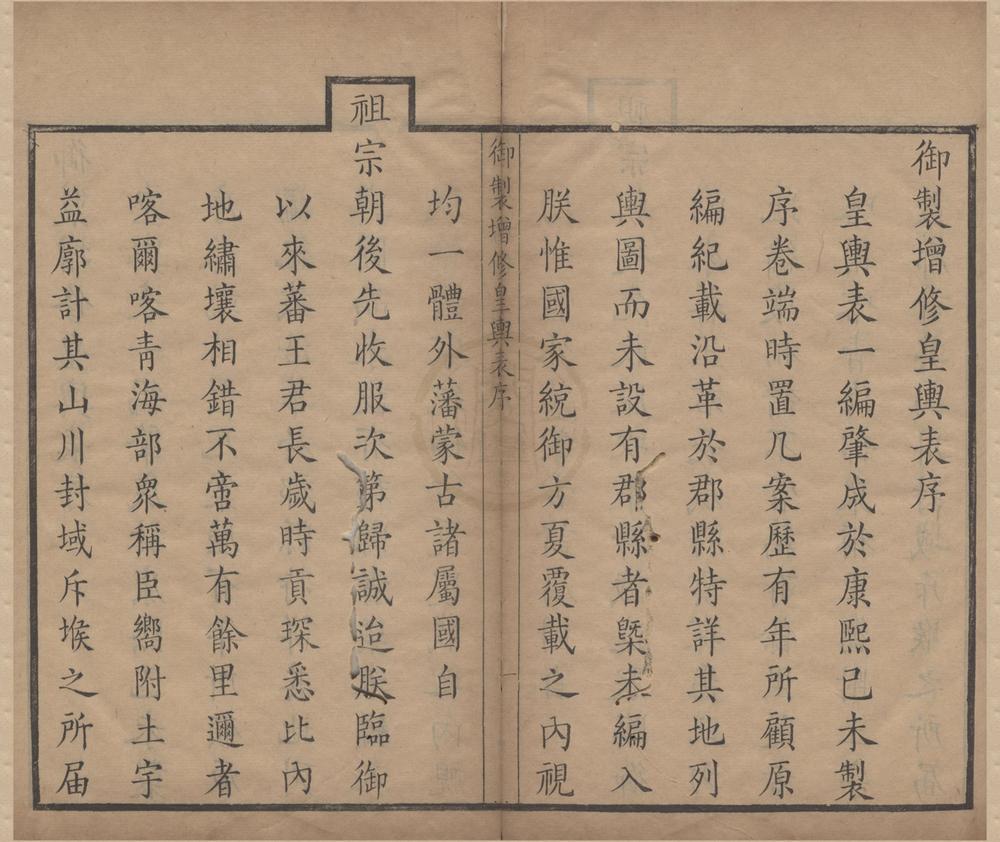 御製增修皇輿表序
皇輿表一編肇成於康熙己未製
序卷端時置几案歷有年所顧原
編紀載沿革於郡縣特詳其地列
輿圖而未設有郡縣者槩未編入
朕惟國家統御方夏覆載之內視
御製增修皇輿表序
一
均一體外藩蒙古諸屬國自
祖宗朝後先收服次第歸誠迨朕臨御
以來蕃王君長歲時貢琛悉比內
地繡壤相錯不啻萬有餘里邇者
喀爾喀青海部眾稱臣嚮附土宇
益廓計其山川封域斥堠之所屆